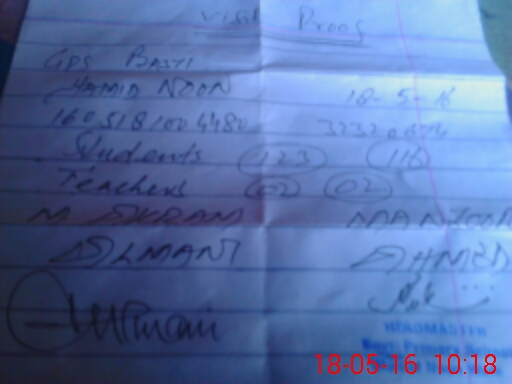 Visit Proof
GPS BASTI
HAMID NOON 18-5-16
1605181004480
Students 123 116
Teachers 02 02
M. AKRAM MANZOOR
SALMANI AHMED
HEADMASTER
Govt: Primary School
18-05-16 10:18